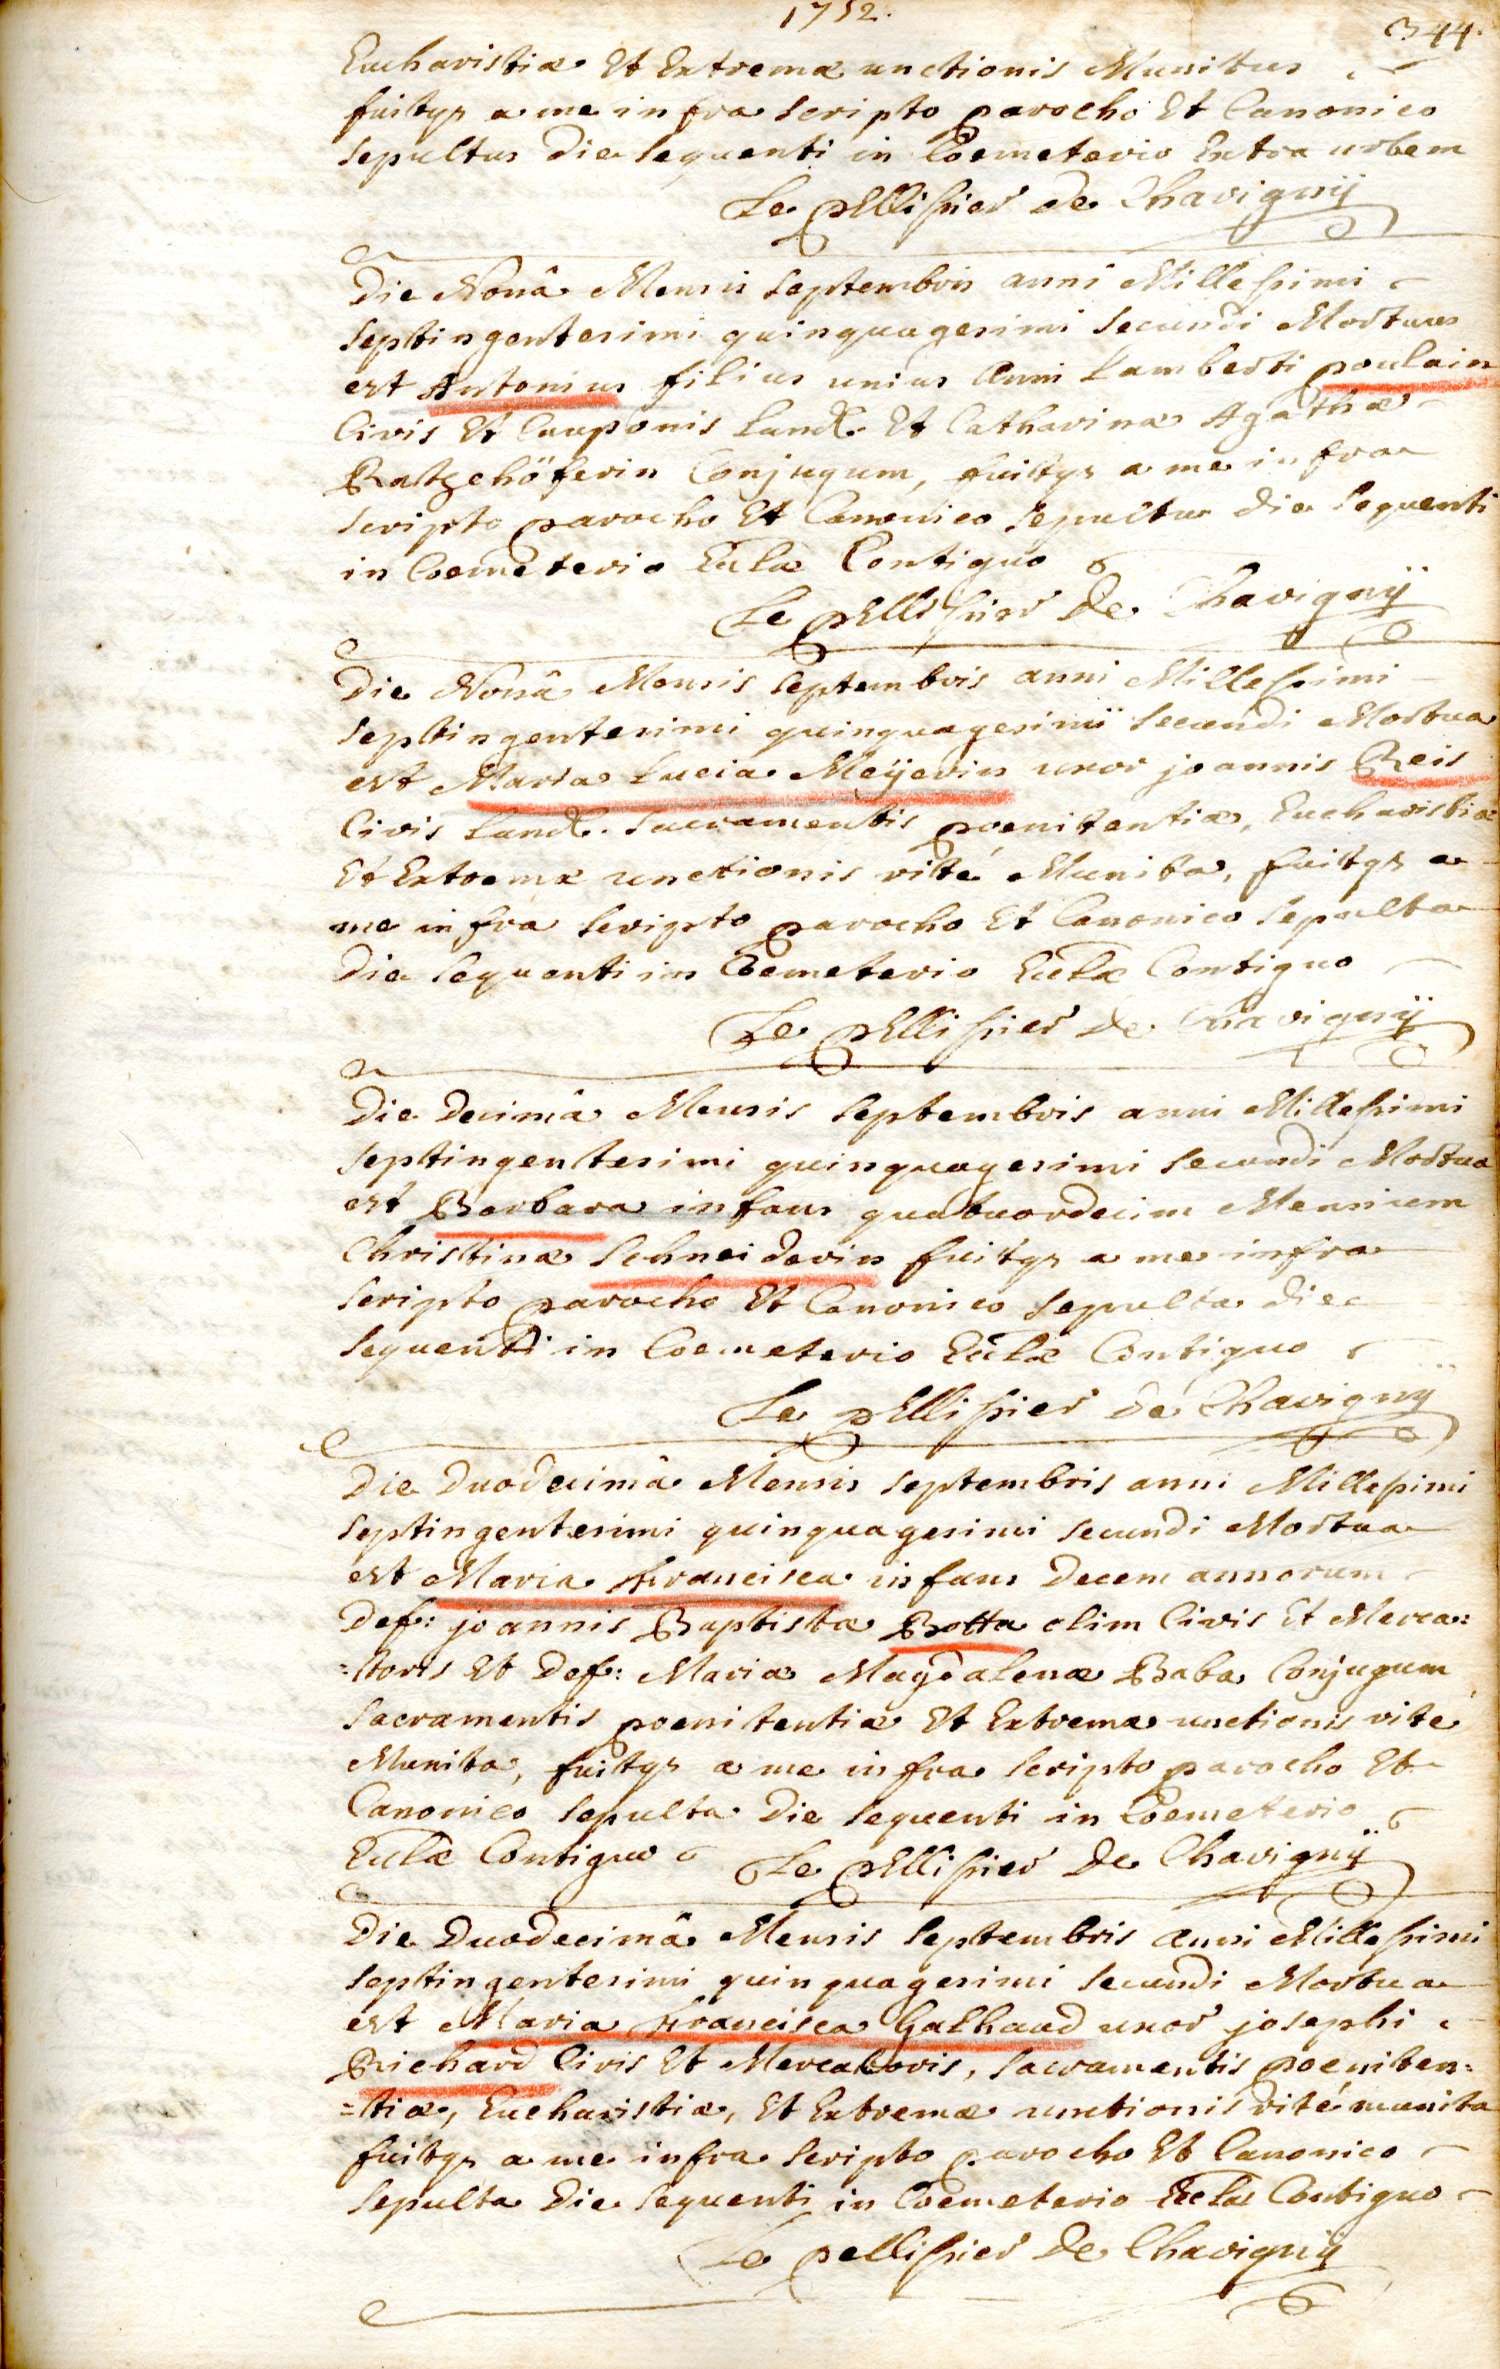 1752.
344.
Eucharistiæ Et Extremæ unctionis Munitus
fuitqs a me infra scripto parocho Et Canonico
sepultus die sequenti in Coemeterio Extra urbem
Le pellissier de Chavignÿ
Die Nonâ Mensis septembris anni Millessimi
septingentesimi quinquagesimi secundi Mortuus
est Antonius filius unius Anni Lamberti poulain
Civis Et Cauponis Land. Et Catharinæ Agathæ
Ratzchöferin Conjugum, fuitqs a me infra
scripto parocho Et Canonico sepultus die sequenti
in Coemeterio Eclæ Contiguo
Le pellissier de Chavignÿ
Die Nonâ Mensis septembris anni Millessimi
septingentesimi quinquagesimi secundi Mortua
est Maria Lucia Meÿerin uxor joannis Reis
Civis Land. sacramentis poenitentiæ, Eucharistiæ
Et Extremæ unctionis rité Munita, fuitqs a
me infra scripto parocho Et Canonico sepulta
die sequenti in Coemeterio Eclæ Contiguo
Le pellissier de Chavignÿ
Die Decimâ Mensis septembris anni Millessimi
septingentesimi quinquagesimi secundi Mortua
est Barbara infans quatuordecim Mensium
Christinæ Schneiderin fuitqs a me infra
scripto parocho Et Canonico sepulta die
sequenti in Coemeterio Eclæ Contiguo
Le pellissier de Chavignÿ
Die Duodecimâ Mensis septembris anni Millessimi
septingentesimi quinquagesimi secundi Mortua
est Maria Francisca infans Decem annorum
Def: joannis Baptistæ Botta olim Civis Et Merca:
=toris Et Def: Mariæ Magdalenæ Baba Conjugum
sacramentis poenitentiæ Et Extremæ unctionis rite
Munita, fuitqs a me infra scripto parocho Et
Canonico sepulta Die sequenti in Coemeterio
Eclæ Contiguo Le pellissier de Chavignÿ
Die Duodecimâ Mensis septembris Anni Millessimi
septingentesimi quinquagesimi secundi Mortua
est Maria Francisca Galhaud uxor josephi
Richard Civis Et Mercatoris, sacramentis poeniten:
=tiæ, Eucharistiæ, Et Extremæ unctionis rité munita
fuitqs a me infra scripto parocho Et Canonico
sepulta Die sequenti in Coemeterio Eclæ Contiguo
Le pellissier de Chavignÿ